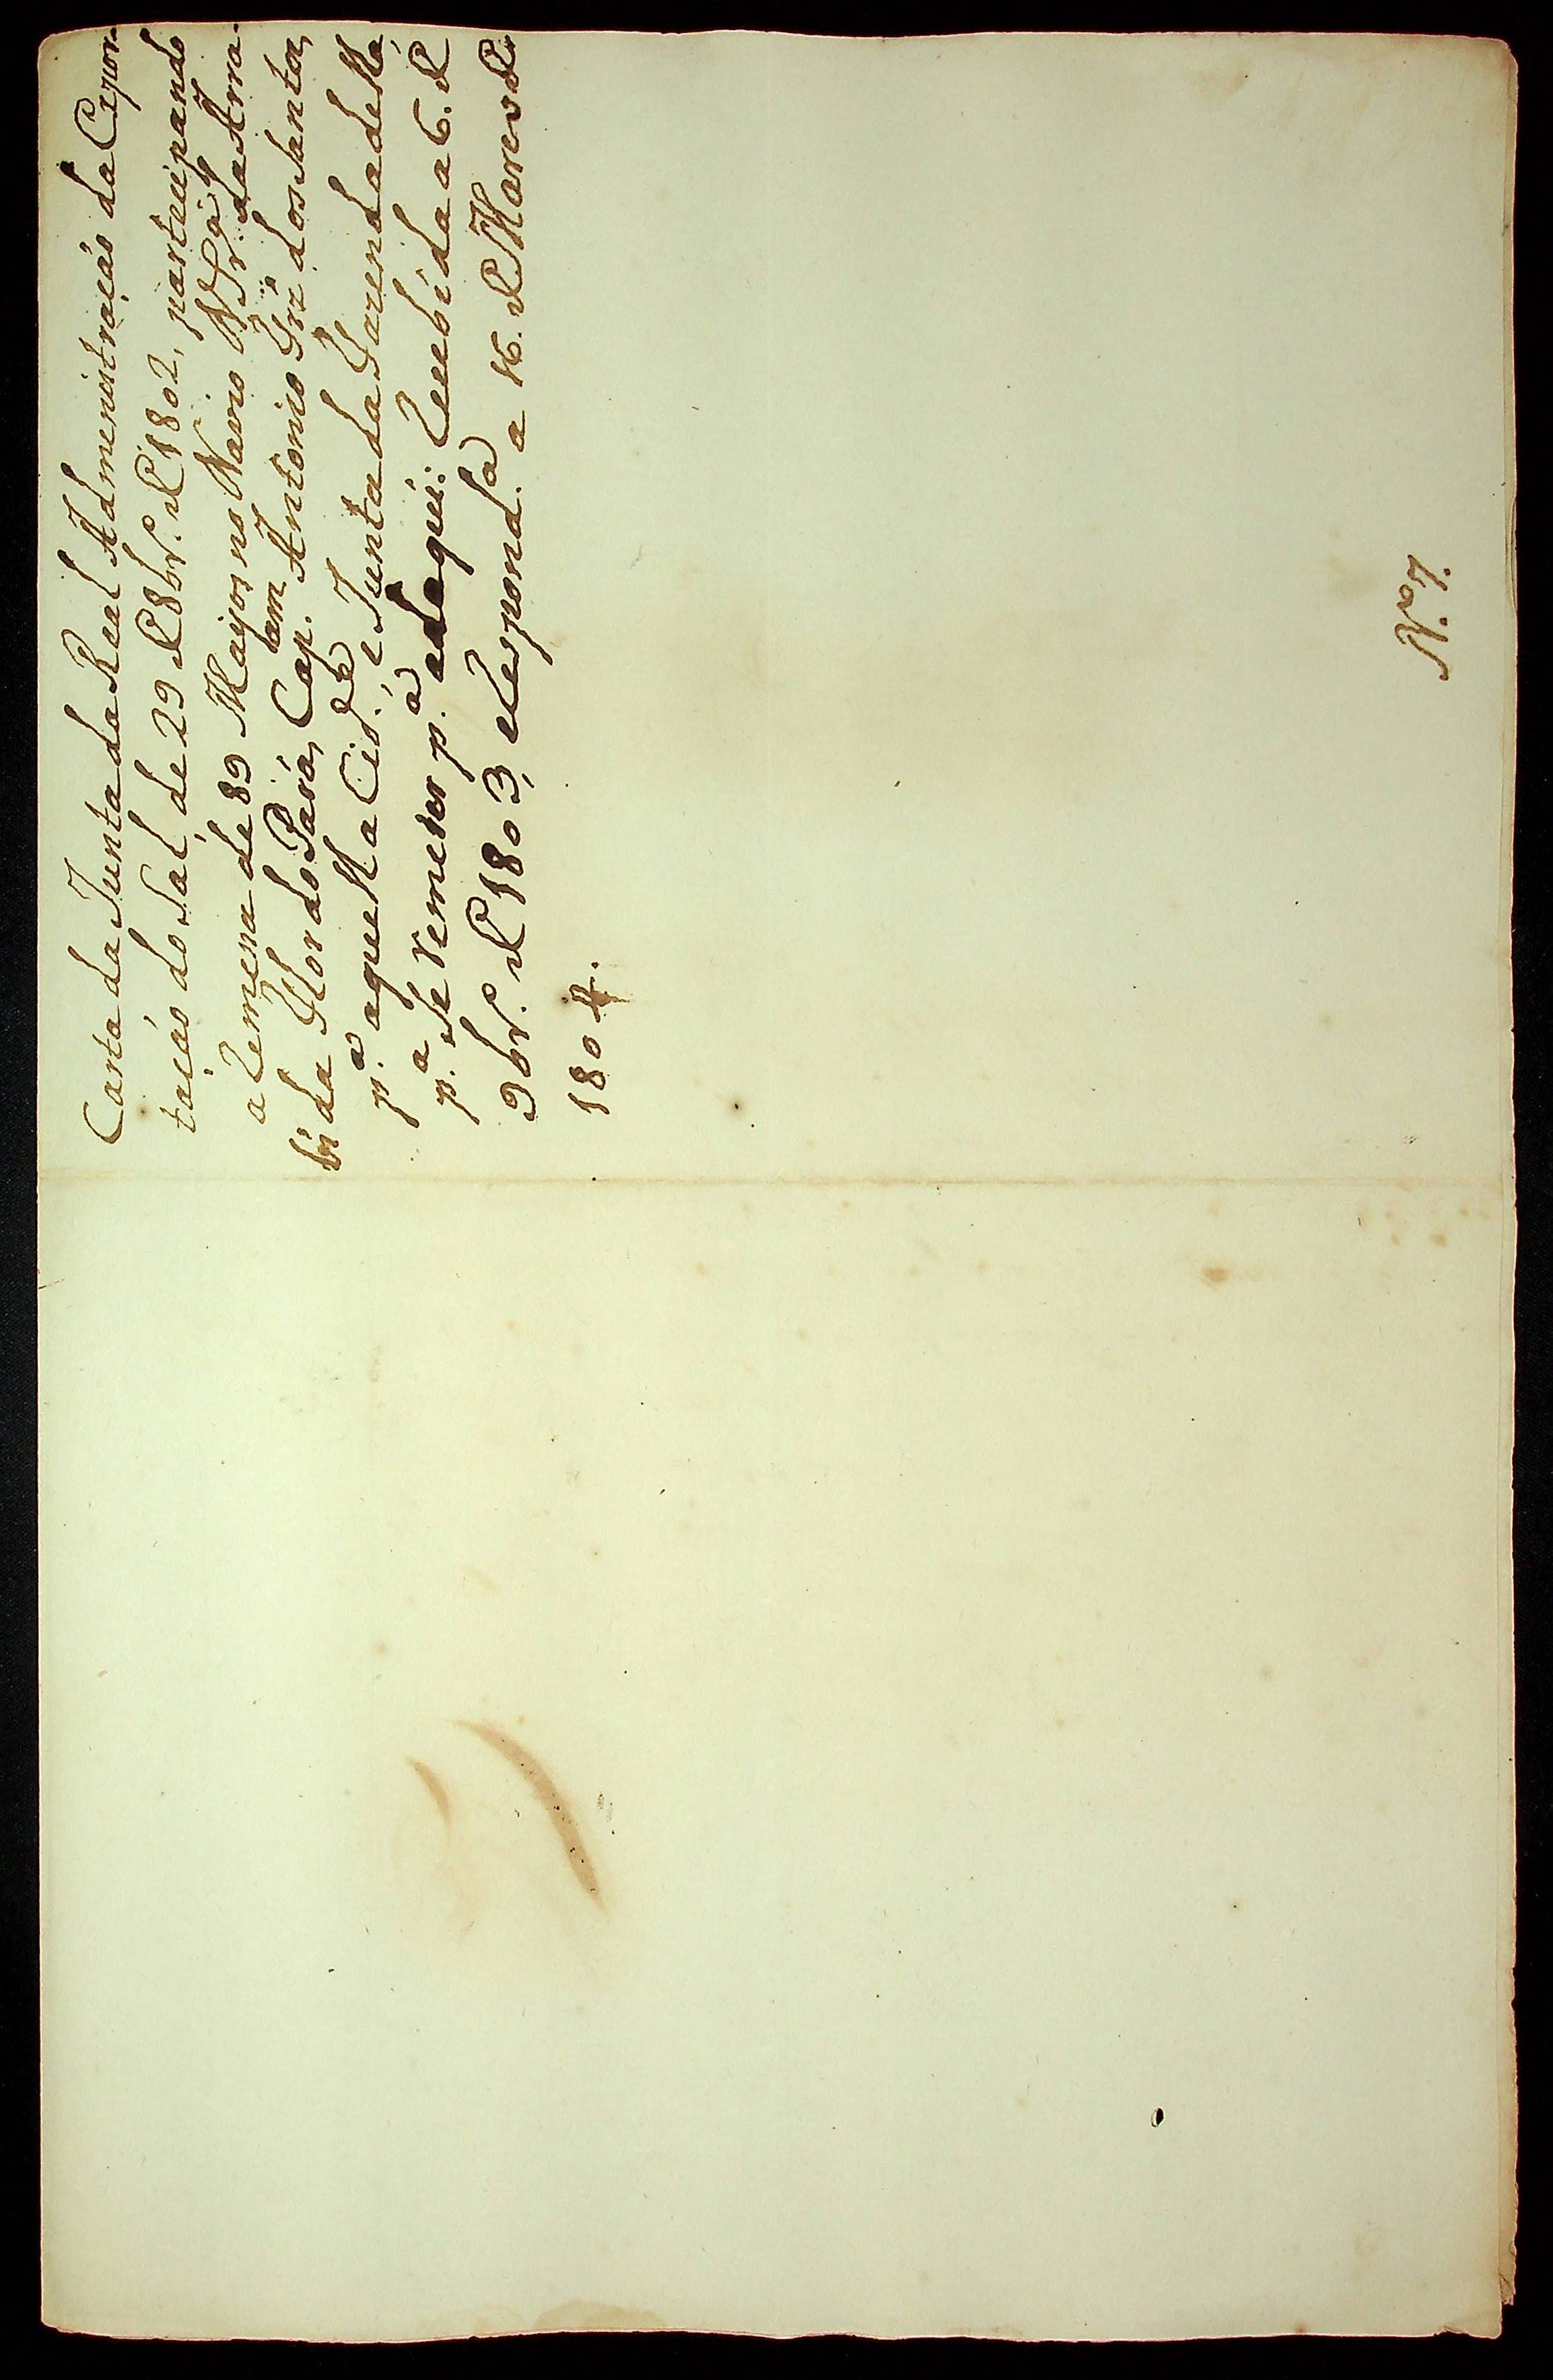 Carta da Junta da Real Admenistração da Expor-
tação do Sal, de 29 de 8br.º de 1802, partecipando
a Remessa de 89 Mayos no Navio N. Sr.ª da Arra-
bida Flor do Pará, Cap.am Antonio Frz dos Santos,
p.ª aquella Cid.e, e Junta da Fazenda della
p.ª Se remeter p.ª adaqui: Recebida a 6. de
9br.º de 1803, e Respond.ª a 16. de Março de
1804.
N.º 7.